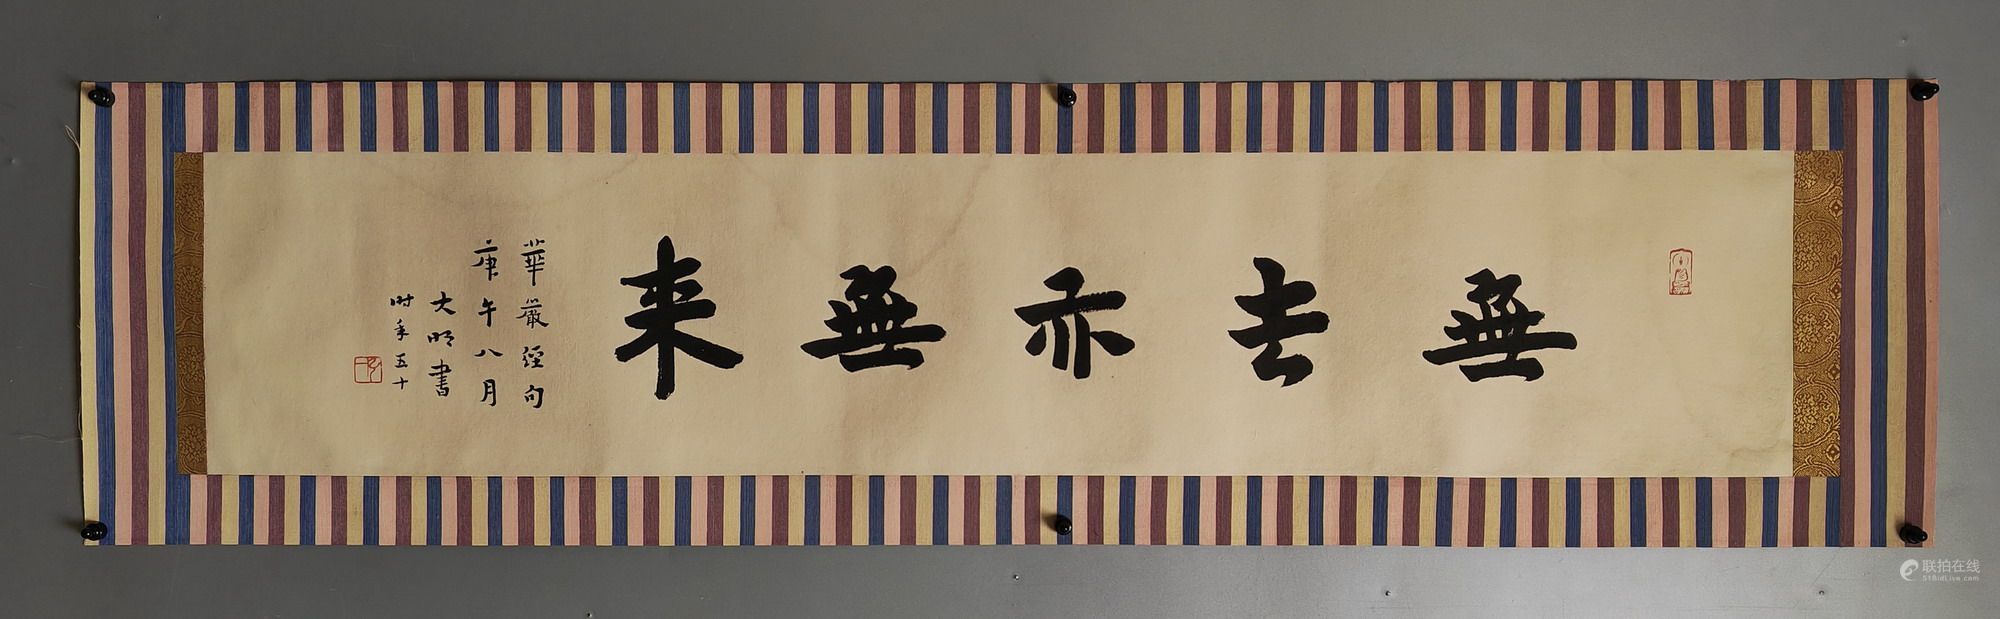 無去亦無来
華嚴經句
庚午八月
大明書
时年五十
联拍在线
51BidLive.com